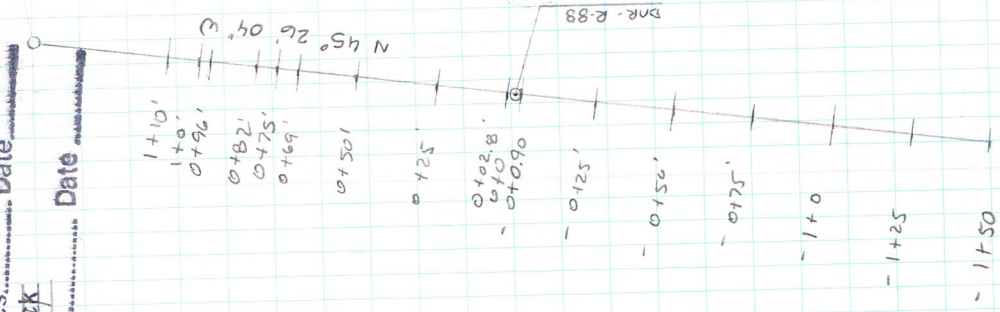 Date
Date
N 45° 26' 04" W
DNR-R-88
1+10'
1+0'
0+96'
0+82'
0+75'
0+69'
0+50'
0+25'
0+02.8'
0+0'
- 0+0.90
- 0+25'
- 0+50'
- 0+75'
- 1+0
- 1+25
- 1+50